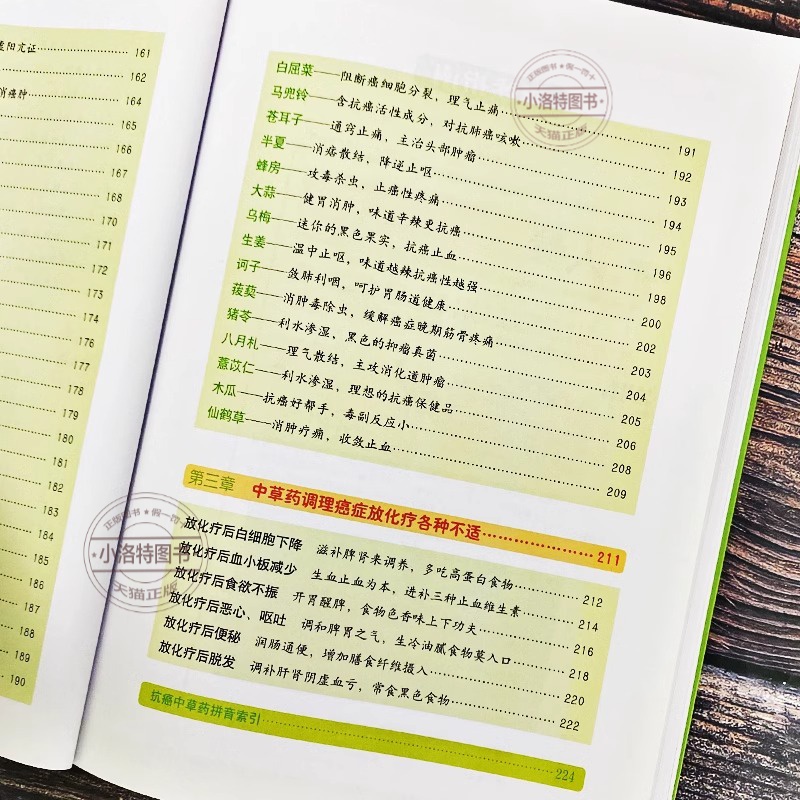 虚阳亢证 161
162
消癌肿 164
165
166
167
168
170
171
172
173
174
176
177
178
179
180
181
182
183
184
185
186
187
188
189
190
白屈菜——阻断癌细胞分裂，理气止痛 191
马兜铃——含抗癌活性成分，对抗肺癌咳嗽 192
苍耳子——通窍止痛，主治头部肿瘤 193
半夏——消痞散结，降逆止呕 194
蜂房——攻毒杀虫，止癌性疼痛 195
大蒜——健胃消肿，味道辛辣更抗癌 196
乌梅——迷你的黑色果实，抗癌止血 198
生姜——温中止呕，味道越辣抗癌性越强 200
诃子——敛肺利咽，呵护胃肠道健康 202
菝葜——消肿毒除虫，缓解癌症晚期筋骨疼痛 203
猪苓——利水渗湿，黑色的抑瘤真菌 204
八月札——理气散结，主攻消化道肿瘤 205
薏苡仁——利水渗湿，理想的抗癌保健品 206
木瓜——抗癌好帮手，毒副反应小 208
仙鹤草——消肿疗痛，收敛止血 209
第三章 中草药调理癌症放化疗各种不适 211
放化疗后白细胞下降 滋补脾肾来调养，多吃高蛋白食物 212
放化疗后血小板减少 生血止血为本，进补三种止血维生素 214
放化疗后食欲不振 开胃醒脾，食物色香味上下功夫 216
放化疗后恶心、呕吐 调和脾胃之气，生冷油腻食物莫入口 218
放化疗后便秘 润肠通便，增加膳食纤维摄入 220
放化疗后脱发 调补肝肾阴虚血亏，常食黑色食物 222
抗癌中草药拼音索引 224
正版图书 假一罚十
小洛特图书
天猫正版
正版图书 假一罚十
小洛特图书
天猫正版